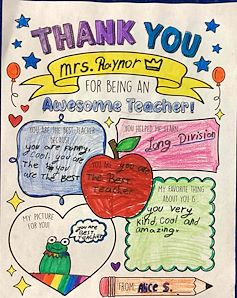 THANK YOU
Mrs. Raynor
FOR BEING AN
Awesome Teacher!
YOU ARE THE BEST TEACHER
BECAUSE
you are funny,
cool, you are
the
you
are the BEST
YOU HELPED ME LEARN
Long Division
YOU ARE
The Best
Teacher
MY FAVORITE THING
ABOUT YOU IS
you very
kind, cool and
amazing.
MY PICTURE
FOR YOU!
YOU ARE
BEST
TEACHER
FROM: Alice S.